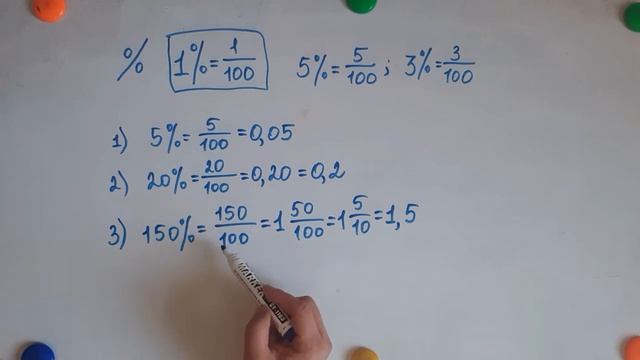 % 1% = 1/100 5% = 5/100 ; 3% = 3/100
1) 5% = 5/100 = 0,05
2) 20% = 20/100 = 0,20 = 0,2
3) 150% = 150/100 = 1 50/100 = 1 5/10 = 1,5
MARKER